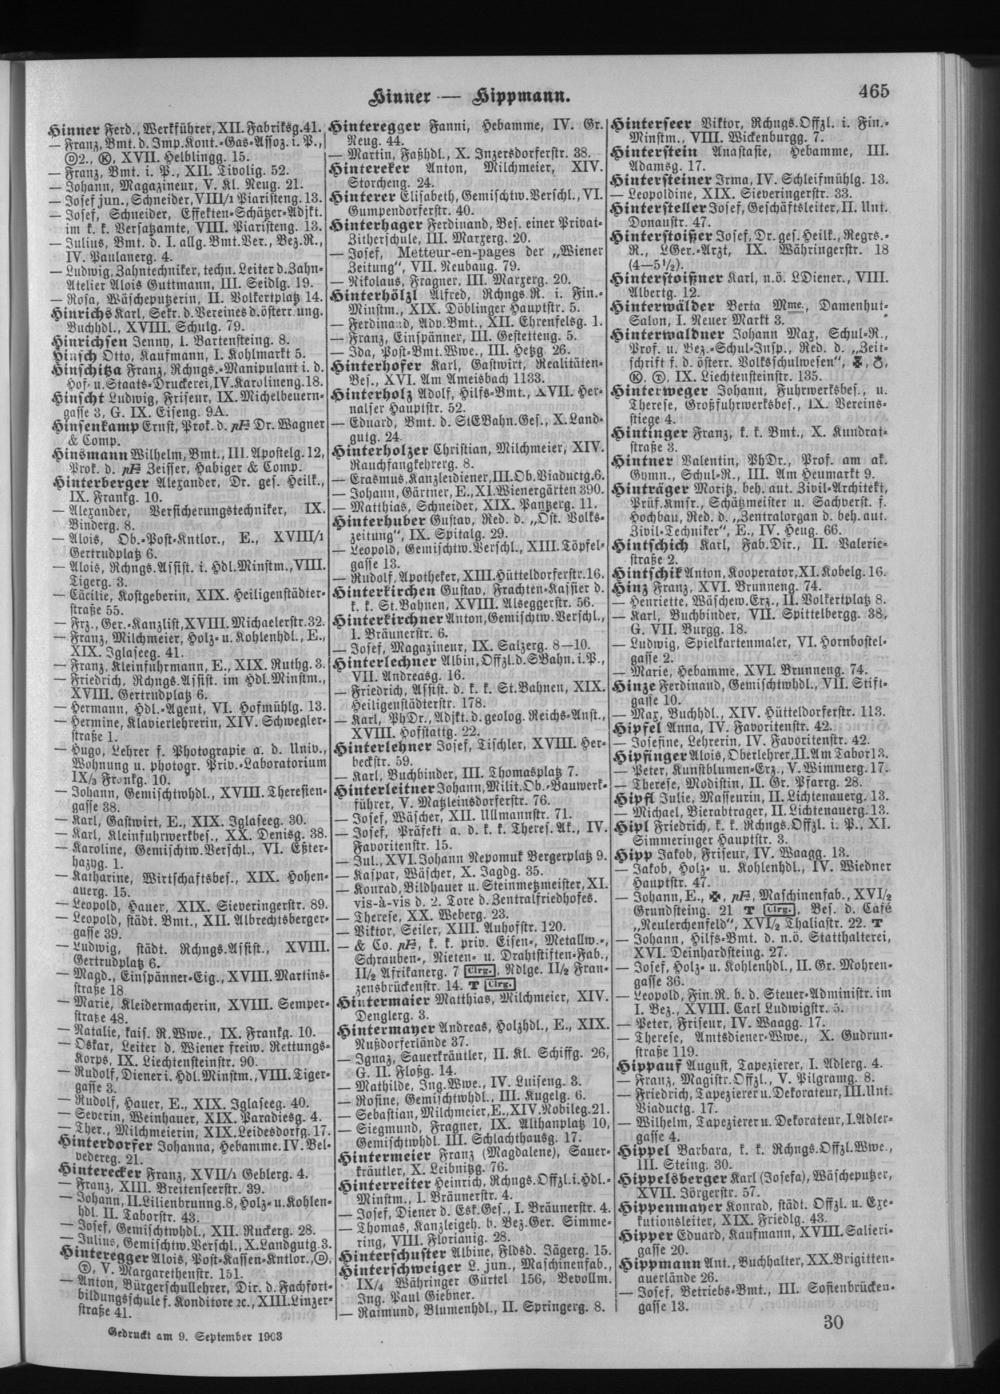 Hinner — Hippmann.
465
Hinner Ferd., Werkführer, XII. Fabriksg. 41.
— Franz, Bmt. d. Imp. Kont.-Gas-Assoz. i. P.,
2., XVII. Helblingg. 15.
— Franz, Bmt. i. P., XII. Tivolig. 52.
— Johann, Magazineur, V. Kl. Neug. 21.
— Josef jun., Schneider, VIII/1 Piaristeng. 13.
— Josef, Schneider, Effekten-Schätzer-Adjkt.
im k. k. Versatzamte, VIII. Piaristeng. 13.
— Julius, Bmt. d. I. allg. Bmt. Ver., Bez.-R.,
IV. Paulanerg. 4.
— Ludwig, Zahntechniker, techn. Leiter d. Zahn-
Atelier Alois Guttmann, III. Seidlg. 19.
— Rosa, Wäscheputzerin, II. Volkertplatz 14.
Hinrichs Karl, Sekr. d. Vereines d. österr. ung.
Buchhdl., XVIII. Schulg. 79.
Hinrichsen Jenny, I. Bartensteing. 8.
Hinsch Otto, Kaufmann, I. Kohlmarkt 5.
Hinschitza Franz, Rchngs.-Manipulant i. d.
Hof- u. Staats-Druckerei, IV. Karolineng. 18.
Hinscht Ludwig, Friseur, IX. Michelbeuern-
gasse 3, G. IX. Eiseng. 9A.
Hinsenkamp Ernst, Prok. d. Dr. Wagner
& Comp.
Hinsmann Wilhelm, Bmt., III. Apostelg. 12,
Prok. d. Zeisser, Habiger & Comp.
Hinterberger Alexander, Dr. ges. Heilk.,
IX. Frankg. 10.
— Alexander, Versicherungstechniker, IX.
Binderg. 8.
— Alois, Ob.-Post-Kntlor., E., XVIII/1
Gertrudplatz 6.
— Alois, Rchngs. Assist. i. Hdl. Minstm., VIII.
Tigerg. 3.
— Cäcilie, Kostgeberin, XIX. Heiligenstädter-
straße 55.
— Frz., Ger.-Kanzlist, XVIII. Michaelerstr. 32.
— Franz, Milchmeier, Holz- u. Kohlenhdl., E.,
XIX. Iglaseeg. 41.
— Franz, Kleinfuhrmann, E., XIX. Ruthg. 3.
— Friedrich, Rchngs. Assist. im Hdl. Minstm.,
XVIII. Gertrudplatz 6.
— Hermann, Hdl.-Agent, VI. Hofmühlg. 13.
— Hermine, Klavierlehrerin, XIV. Schwegler-
straße 1.
— Hugo, Lehrer f. Photograpie a. d. Univ.,
Wohnung u. photogr. Priv.-Laboratorium
IX/3 Frankg. 10.
— Johann, Gemischtwhdl., XVIII. Theresien-
gasse 38.
— Karl, Gastwirt, E., XIX. Iglaseeg. 30.
— Karl, Kleinfuhrwerkbes., XX. Denisg. 38.
— Karoline, Gemischtw. Verschl., VI. Eßter-
hazyg. 1.
— Katharine, Wirtschaftsbes., XIX. Hohen-
auerg. 15.
— Leopold, Hauer, XIX. Sieveringerstr. 89.
— Leopold, städt. Bmt., XII. Albrechtsberger-
gasse 39.
— Ludwig, städt. Rchngs. Assist., XVIII.
Gertrudplatz 6.
— Magd., Einspänner-Eig., XVIII. Martins-
straße 18
— Marie, Kleidermacherin, XVIII. Semper-
straße 48.
— Natalie, kais. R. Wwe., IX. Frankg. 10.
— Oskar, Leiter d. Wiener freiw. Rettungs-
Korps, IX. Liechtensteinstr. 90.
— Rudolf, Diener i. Hdl. Minstm., VIII. Tiger-
gasse 3.
— Rudolf, Hauer, E., XIX. Iglaseeg. 40.
— Severin, Weinhauer, XIX. Paradiesg. 4.
— Ther., Milchmeierin, XIX. Leidesdorfg. 17.
Hinterdorfer Johanna, Hebamme. IV. Bel-
vedereg. 21.
Hinterecker Franz, XVII/1 Geblerg. 4.
— Franz, XIII. Breitenseerstr. 39.
— Johann, II. Lilienbrunng. 8, Holz- u. Kohlen-
hdl. II. Taborstr. 43.
— Josef, Gemischtwhdl., XII. Ruckerg. 28.
— Julius, Gemischtw. Verschl., X. Landgutg. 3.
Hinteregger Alois, Post-Kassen-Kntlor.,
V. Margarethenstr. 151.
— Anton, Bürgerschullehrer, Dir. d. Fachfort-
bildungsschule f. Konditore ꝛc., XIII. Linzer-
straße 41.
Hinteregger Fanni, Hebamme, IV. Gr.
Neug. 44.
— Martin, Faßhdl., X. Inzersdorferstr. 38.
Hintereker Anton, Milchmeier, XIV.
Storcheng. 24.
Hinterer Elisabeth, Gemischtw. Verschl., VI.
Gumpendorferstr. 40.
Hinterhager Ferdinand, Bes. einer Privat-
Zitherschule, III. Marxerg. 20.
— Josef, Metteur-en-pages der „Wiener
Zeitung“, VII. Neubaug. 79.
— Nikolaus, Fragner, III. Marxerg. 20.
Hinterhölzl Alfred, Rchngs. R. i. Fin.-
Minstm., XIX. Döblinger Hauptstr. 5.
— Ferdinand, Adv. Bmt., XII. Ehrenfelsg. 1.
— Franz, Einspänner, III. Gestetteng. 5.
— Ida, Post-Bmt. Wwe., III. Hetzg 26.
Hinterhofer Karl, Gastwirt, Realitäten-
Bes., XVI. Am Ameisbach 1133.
Hinterholz Adolf, Hilfs-Bmt., XVII. Her-
nalser Hauptstr. 52.
— Eduard, Bmt. d. StEBahn. Ges., X. Land-
gutg. 24.
Hinterholzer Christian, Milchmeier, XIV.
Rauchfangkehrerg. 8.
— Erasmus, Kanzleidiener, III. Ob. Viaductg. 6.
— Johann, Gärtner, E., XI. Wienergärten 390.
— Matthias, Schneider, XIX. Pantzerg. 11.
Hinterhuber Gustav, Red. d. „Öst. Volks-
zeitung“, IX. Spitalg. 29.
— Leopold, Gemischtw. Verschl., XIII. Töpfel-
gasse 13.
— Rudolf, Apotheker, XIII. Hütteldorferstr. 16.
Hinterkirchen Gustav, Frachten-Kassier d.
k. k. St. Bahnen, XVIII. Alseggerstr. 56.
Hinterkirchner Anton, Gemischtw. Verschl.,
I. Bräunerstr. 6.
— Josef, Magazineur, IX. Salzerg. 8—10.
Hinterlechner Albin, Offzl. d. SBahn. i. P.,
VII. Andreasg. 16.
— Friedrich, Assist. d. k. k. St. Bahnen, XIX.
Heiligenstädterstr. 178.
— Karl, PhDr., Adjkt. d. geolog. Reichs-Anst.,
XVIII. Hofstattg. 22.
Hinterlehner Josef, Tischler, XVIII. Her-
beckstr. 59.
— Karl, Buchbinder, III. Thomasplatz 7.
Hinterleitner Johann, Milit. Ob.-Bauwerk-
führer, V. Matzleinsdorferstr. 76.
— Josef, Wäscher, XII. Ullmannstr. 71.
— Josef, Präfekt a. d. k. k. Theres. Ak., IV.
Favoritenstr. 15.
— Jul., XVI. Johann Nepomuk Bergerplatz 9.
— Kaspar, Wäscher, X. Jagdg. 35.
— Konrad, Bildhauer u. Steinmetzmeister, XI.
vis-à-vis d. 2. Tore d. Zentralfriedhofes.
— Therese, XX. Weberg. 23.
— Viktor, Seiler, XIII. Auhofstr. 120.
— & Co. k. k. priv. Eisen-, Metallw.-,
Schrauben-, Nieten- u. Drahtstiften-Fab.,
II/2 Afrikanerg. 7 Clrg., Ndlge. II/2 Fran-
zensbrückenstr. 14. T Clrg.
Hintermaier Matthias, Milchmeier, XIV.
Denglerg. 3.
Hintermayer Andreas, Holzhdl., E., XIX.
Nußdorferlände 37.
— Ignaz, Sauerkräutler, II. Kl. Schiffg. 26,
G. II. Floßg. 14.
— Mathilde, Ing. Wwe., IV. Luiseng. 3.
— Rosine, Gemischtwhdl., III. Kugelg. 6.
— Sebastian, Milchmeier, E., XIV. Robileg. 21.
— Siegmund, Fragner, IX. Althanplatz 10,
Gemischtwhdl. III. Schlachthausg. 17.
Hintermeier Franz (Magdalene), Sauer-
kräutler, X. Leibnitzg. 76.
Hinterreiter Heinrich, Rchngs. Offzl. i. Hdl.-
Minstm., I. Bräunerstr. 4.
— Josef, Diener d. Esk. Ges., I. Bräunerstr. 4.
— Thomas, Kanzleigeh. b. Bez. Ger. Simme-
ring, VIII. Florianig. 28.
Hinterschuster Albine, Fldsd. Jägerg. 15.
Hinterschweiger L. jun., Maschinenfab.,
IX/4 Währinger Gürtel 156, Bevollm.
Ing. Paul Giebner.
— Raimund, Blumenhdl., II. Springerg. 8.
Hinterseer Viktor, Rchngs. Offzl. i. Fin.-
Minstm., VIII. Wickenburgg. 7.
Hinterstein Anastasie, Hebamme, III.
Adamsg. 17.
Hintersteiner Irma, IV. Schleifmühlg. 13.
— Leopoldine, XIX. Sieveringerstr. 33.
Hintersteller Josef, Geschäftsleiter, II. Unt.
Donaustr. 47.
Hinterstoißer Josef, Dr. ges. Heilk., Regrs.-
R., LGer.-Arzt, IX. Währingerstr. 18
(4—5½).
Hinterstoißner Karl, n.ö. LDiener., VIII.
Albertg. 12.
Hinterwälder Berta Mme., Damenhut-
Salon, I. Neuer Markt 3.
Hinterwaldner Johann Max, Schul-R.,
Prof. u. Bez.-Schul-Insp., Red. d. „Zeit-
schrift f. d. österr. Volksschulwesen“,
IX. Liechtensteinstr. 135.
Hinterweger Johann, Fuhrwerksbes., u.
Therese, Großfuhrwerksbes., IX. Vereins-
stiege 4.
Hintinger Franz, k. k. Bmt., X. Kundrat-
straße 3.
Hintner Valentin, PhDr., Prof. am ak.
Gymn., Schul-R., III. Am Heumarkt 9.
Hinträger Moritz, beh. aut. Zivil-Architekt,
Prüf. Kmsr., Schätzmeister u. Sachverst. f.
Hochbau, Red. d. „Zentralorgan d. beh. aut.
Zivil-Techniker“, E., IV. Heug. 66.
Hintschich Karl, Fab. Dir., II. Valerie-
straße 2.
Hintschik Anton, Kooperator, XI. Kobelg. 16.
Hinz Franz, XVI. Brunneng. 74.
— Henriette, Wäschew. Erz., II. Volkertplatz 8.
— Karl, Buchbinder, VII. Spittelbergg. 38,
G. VII. Burgg. 18.
— Ludwig, Spielkartenmaler, VI. Hornbostel-
gasse 2.
— Marie, Hebamme, XVI. Brunneng. 74.
Hinze Ferdinand, Gemischtwhdl., VII. Stift-
gasse 10.
— Max, Buchhdl., XIV. Hütteldorferstr. 113.
Hipfel Anna, IV. Favoritenstr. 42.
— Josefine, Lehrerin, IV. Favoritenstr. 42.
Hipfinger Alois, Oberlehrer, II. Am Tabor 13.
— Peter, Kunstblumen-Erz., V. Wimmerg. 17.
— Therese, Modistin, II. Gr. Pfarrg. 28.
Hipfl Julie, Masseurin, II. Lichtenauerg. 13.
— Michael, Bierabtrager, II. Lichtenauerg. 13.
Hipl Friedrich, k. k. Rchngs. Offzl. i. P., XI.
Simmeringer Hauptstr. 3.
Hipp Jakob, Friseur, IV. Waagg. 13.
— Jakob, Holz- u. Kohlenhdl., IV. Wiedner
Hauptstr. 47.
— Johann, E., Maschinenfab., XVI/2
Grundsteing. 21 T Clrg., Bes. d. Café
„Neulerchenfeld“, XVI/2 Thaliastr. 22. T
— Johann, Hilfs-Bmt. d. n.ö. Statthalterei,
XVI. Deinhardsteing. 27.
— Josef, Holz- u. Kohlenhdl., II. Gr. Mohren-
gasse 36.
— Leopold, Fin. R. b. d. Steuer-Administr. im
I. Bez., XVIII. Carl Ludwigstr. 5.
— Peter, Friseur, IV. Waagg. 17.
— Therese, Amtsdiener-Wwe., X. Gudrun-
straße 119.
Hippauf August, Tapezierer, I. Adlerg. 4.
— Franz, Magistr. Offzl., V. Pilgramg. 8.
— Friedrich, Tapezierer u. Dekorateur, III. Unt.
Viaductg. 17.
— Wilhelm, Tapezierer u. Dekorateur, I. Adler-
gasse 4.
Hippel Barbara, k. k. Rchngs. Offzl. Wwe.,
III. Steing. 30.
Hippelsberger Karl (Josefa), Wäscheputzer,
XVII. Jörgerstr. 57.
Hippenmayer Konrad, städt. Offzl. u. Exe-
kutionsleiter, XIX. Friedlg. 43.
Hipper Eduard, Kaufmann, XVIII. Salieri-
gasse 20.
Hippmann Ant., Buchhalter, XX. Brigitten-
auerlände 26.
— Josef, Betriebs-Bmt., III. Sofienbrücken-
gasse 13.
Gedruckt am 9. September 1903
30